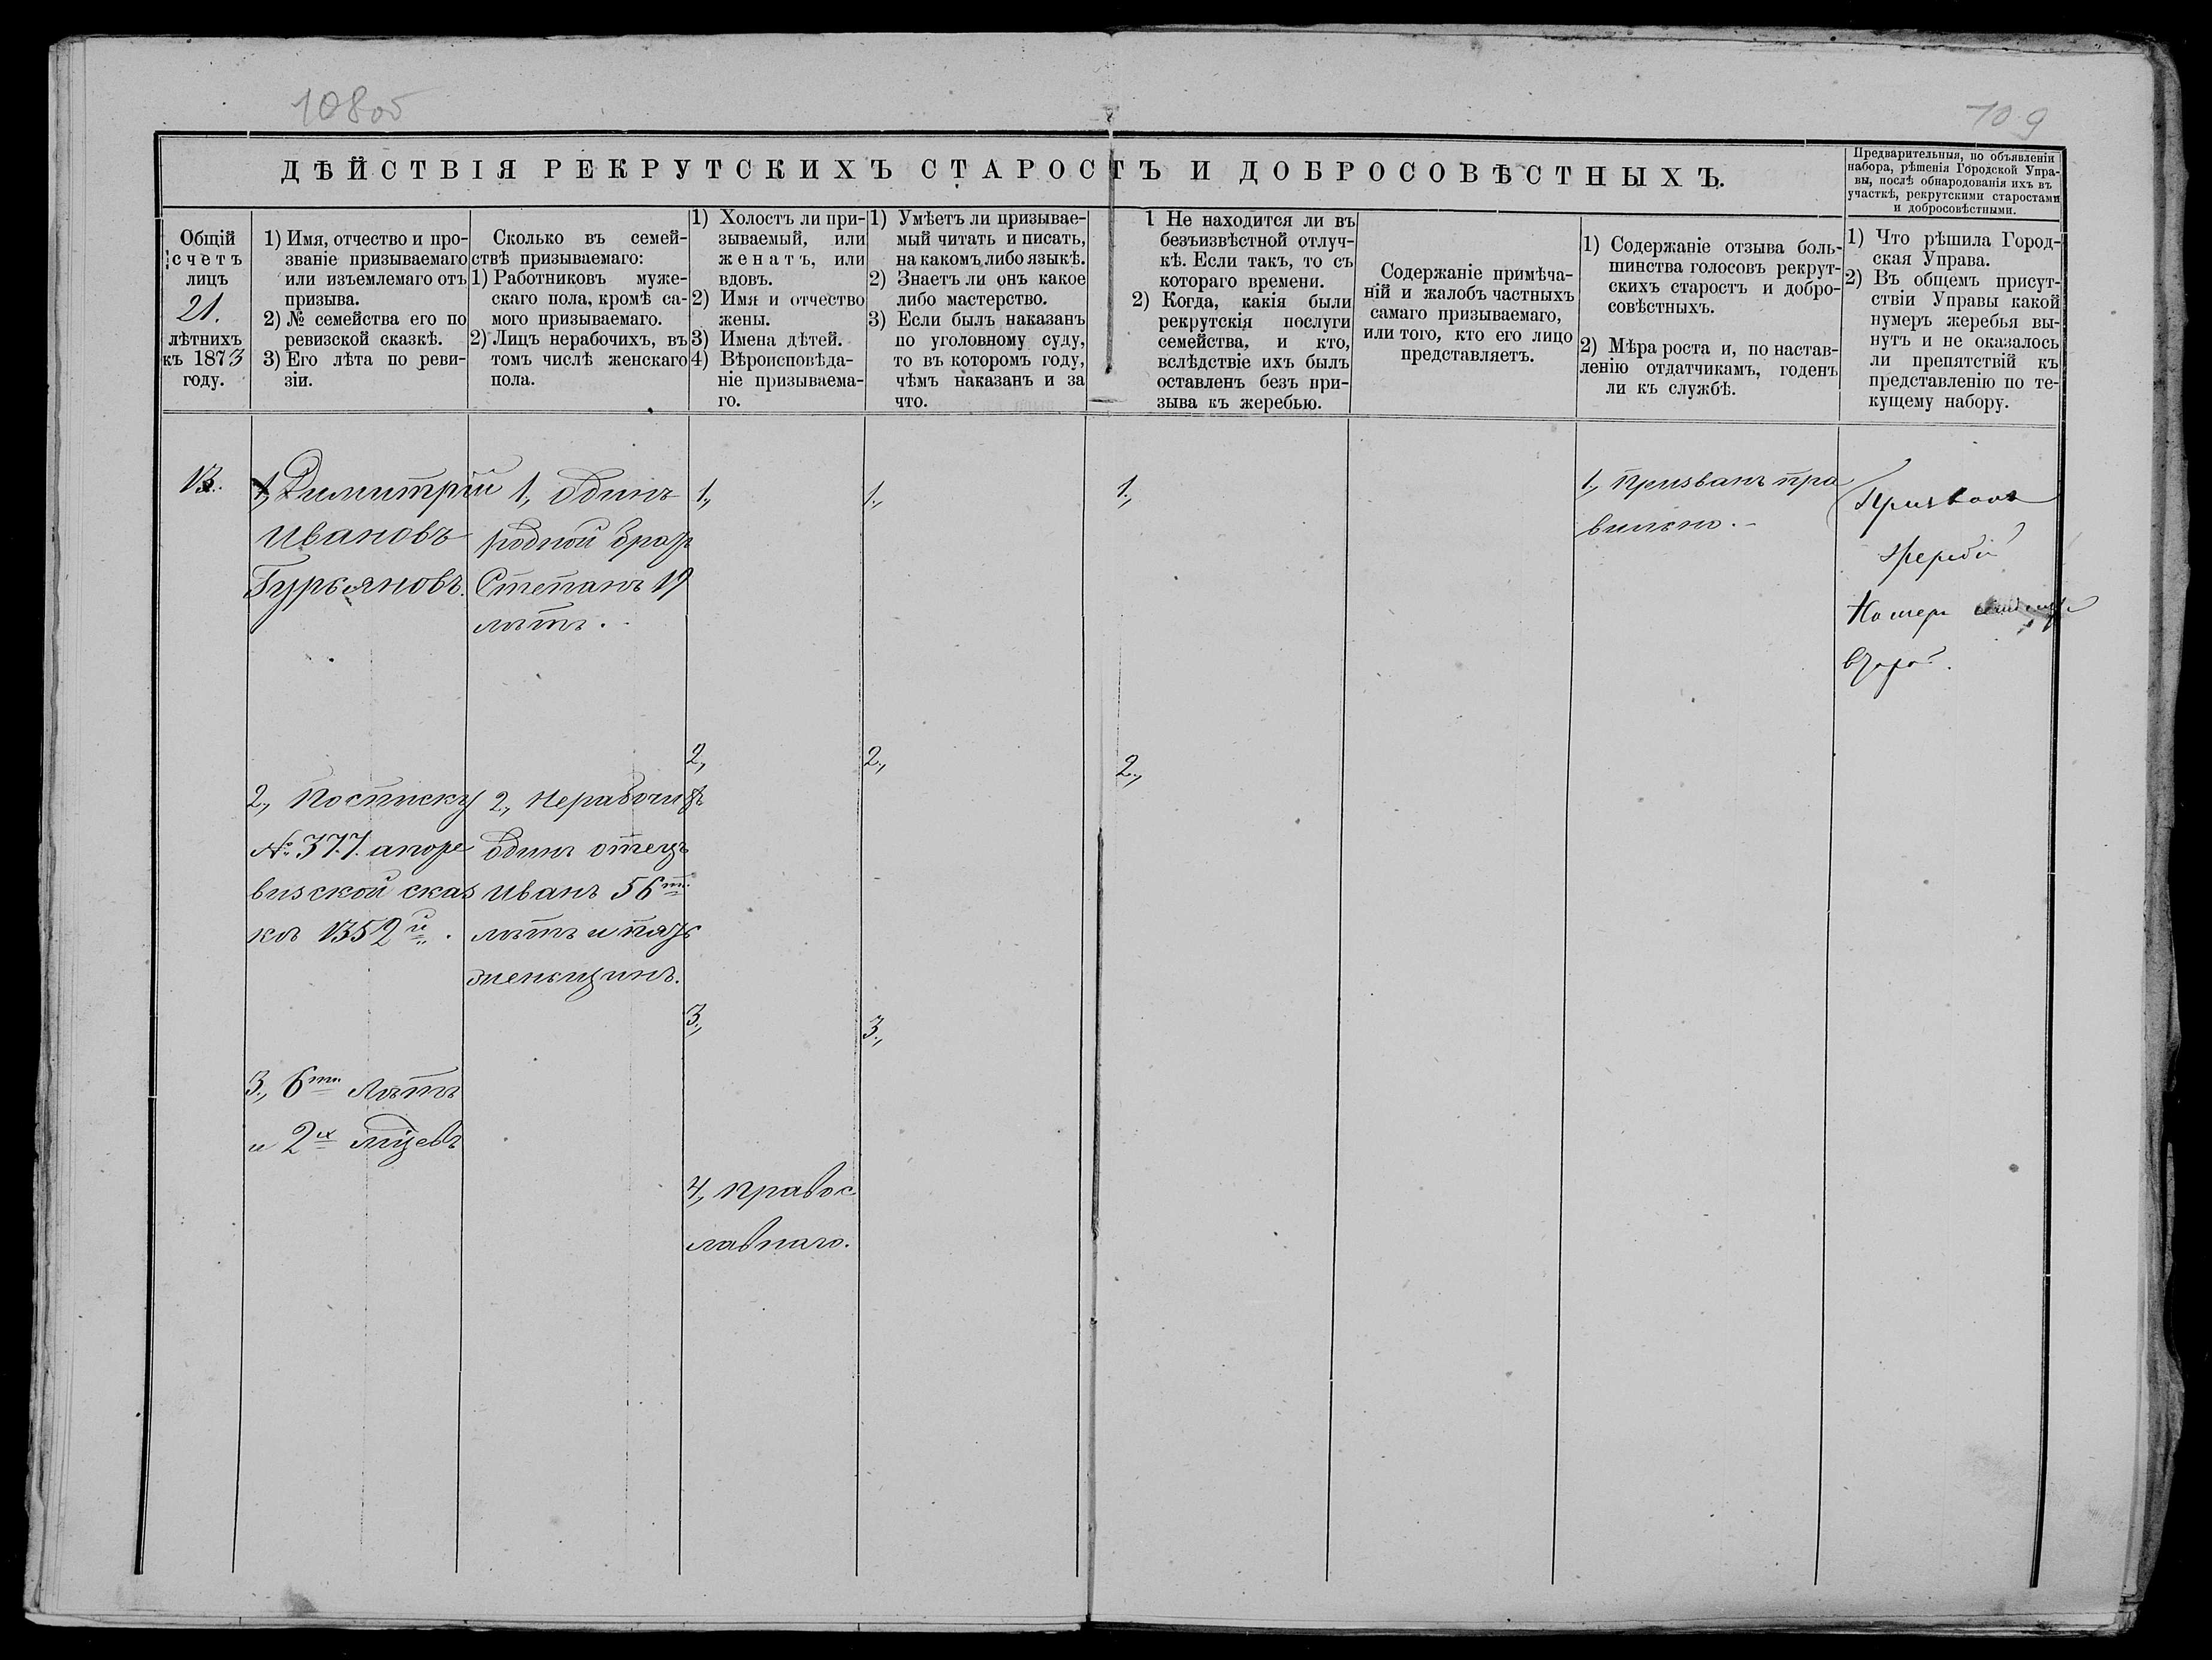 108об
109
ДѢЙСТВІЯ РЕКРУТСКИХЪ СТАРОСТЪ И ДОБРОСОВѢСТНЫХЪ.
Предварительныя, по объявленіи
набора, рѣшенія Городской Упра-
вы, послѣ обнародованія ихъ въ
участкѣ, рекрутскими старостами
и добросовѣстными.
Общій
счетъ
лицъ
21.
лѣтнихъ
къ 1873
году.
1) Имя, отчество и про-
званіе призываемаго
или изъемлемаго отъ
призыва.
2) № семейства его по
ревизской сказкѣ.
3) Его лѣта по реви-
зіи.
Сколько въ семей-
ствѣ призываемаго:
1) Работниковъ муже-
скаго пола, кромѣ са-
мого призываемаго.
2) Лицъ нерабочихъ, въ
томъ числѣ женскаго
пола.
1) Холостъ ли при-
зываемый, или
женатъ, или
вдовъ.
2) Имя и отчество
жены.
3) Имена дѣтей.
4) Вѣроисповѣда-
ніе призываема-
го.
1) Умѣетъ ли призывае-
мый читать и писать,
на какомъ либо языкѣ.
2) Знаетъ ли онъ какое
либо мастерство.
3) Если былъ наказанъ
по уголовному суду,
то въ которомъ году,
чѣмъ наказанъ и за
что.
1 Не находится ли въ
безъизвѣстной отлуч-
кѣ. Если такъ, то съ
котораго времени.
2) Когда, какія были
рекрутскія послуги
семейства, и кто,
вслѣдствіе ихъ былъ
оставленъ безъ при-
зыва къ жеребью.
Содержаніе примѣча-
ній и жалобъ частныхъ
самаго призываемаго,
или того, кто его лицо
представляетъ.
1) Содержаніе отзыва боль-
шинства голосовъ рекрут-
скихъ старостъ и добро-
совѣстныхъ.
2) Мѣра роста и, по настав-
ленію отдатчикамъ, годенъ
ли къ службѣ.
1) Что рѣшила Город-
ская Управа.
2) Въ общемъ присут-
ствіи Управы какой
нумеръ жеребья вы-
нутъ и не оказалось
ли препятствій къ
представленію по те-
кущему набору.
13.
1., Димитрій
Ивановъ
Гурьяновъ.
2., Посписку
№ 377. апоре
визской сказ
кѣ 1352й.
3., 6ти лѣтъ
и 2х мцевъ
1., Одинъ
родной братъ
Степанъ 19
лѣтъ.
2., Нерабочихъ
Одинъ отецъ
Иванъ 56ти
лѣтъ и пять
женьщинъ.
1.,
2.,
3.,
4., Правос
лавнаго.
1.,
2.,
3.,
1.,
2.,
1., Призванъ пра
вильно.-
Призванъ
Жеребій
Номеръ
второй.